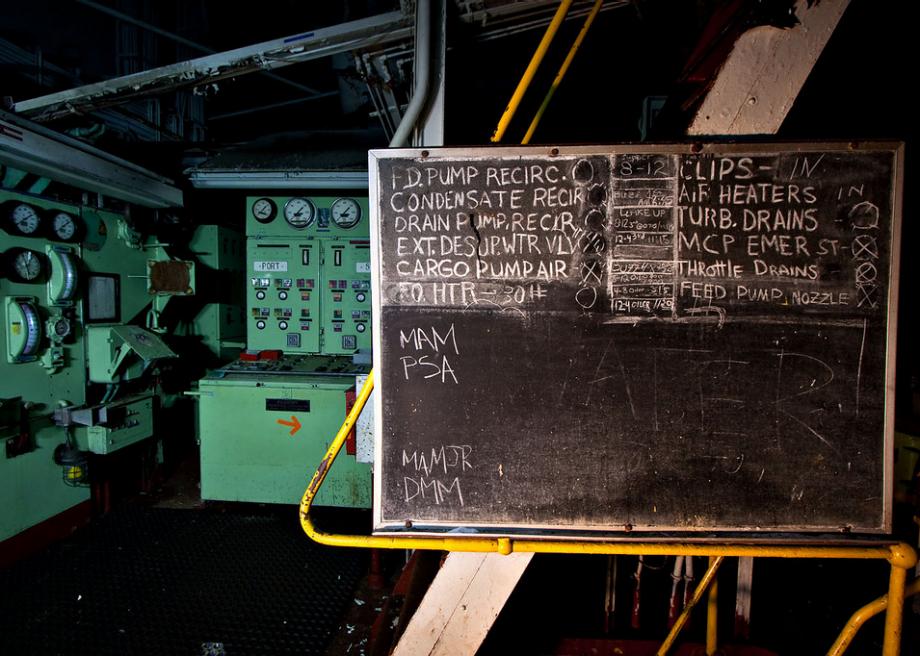 F.D. PUMP RECIRC.
CONDENSATE RECIR
DRAIN PUMP. RECIR.
EXT. DESUP. WTR VLV
CARGO PUMP AIR
F.O. HTR - 30#
8-12
WAKE UP
CLIPS - IN
AIR HEATERS IN
TURB. DRAINS
MCP EMER ST-
THROTTLE DRAINS
FEED PUMP NOZZLE
MAM
PSA
MAMJR
DMM
PORT